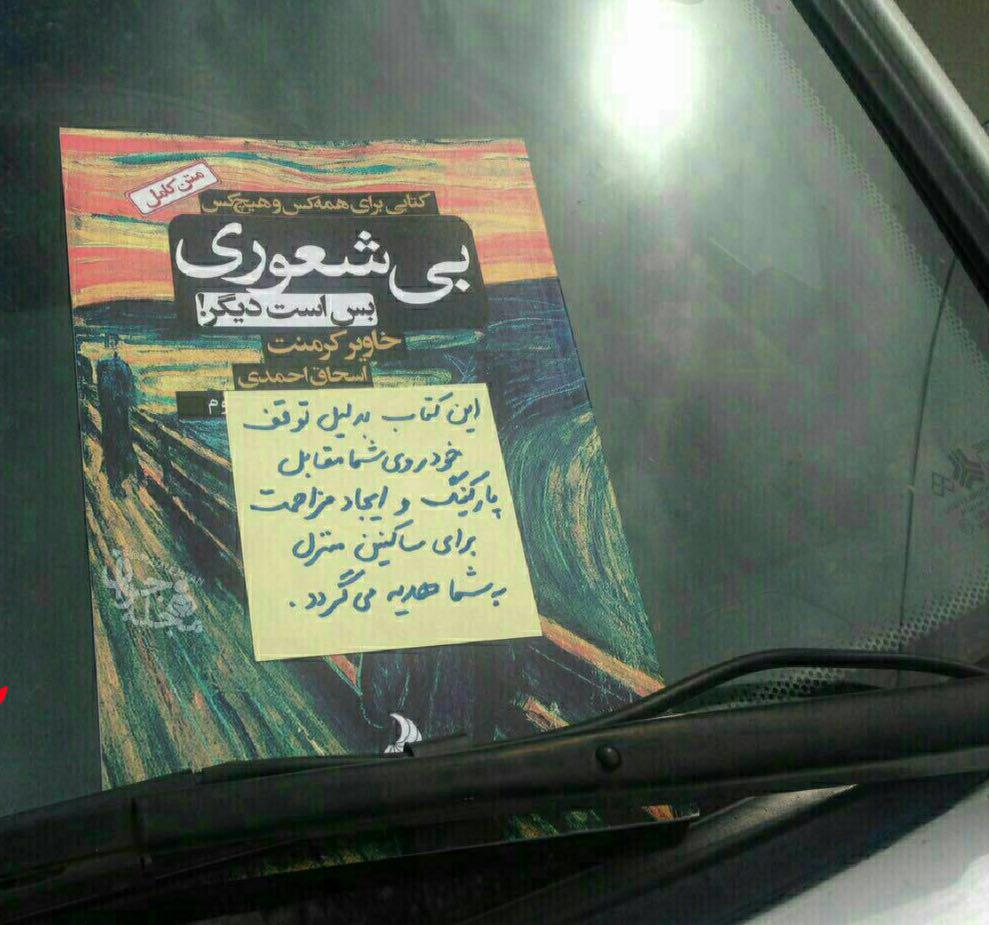 متن کامل
کتابی برای همه‌کس و هیچ‌کس
بی‌شعوری
بس است دیگر!
خاویر کرمنت
اسحاق احمدی
وم
این کتاب بدلیل توقف
خودروی شما مقابل
پارکینگ و ایجاد مزاحمت
برای ساکنین منزل
به شما هدیه می‌گردد.
مجله